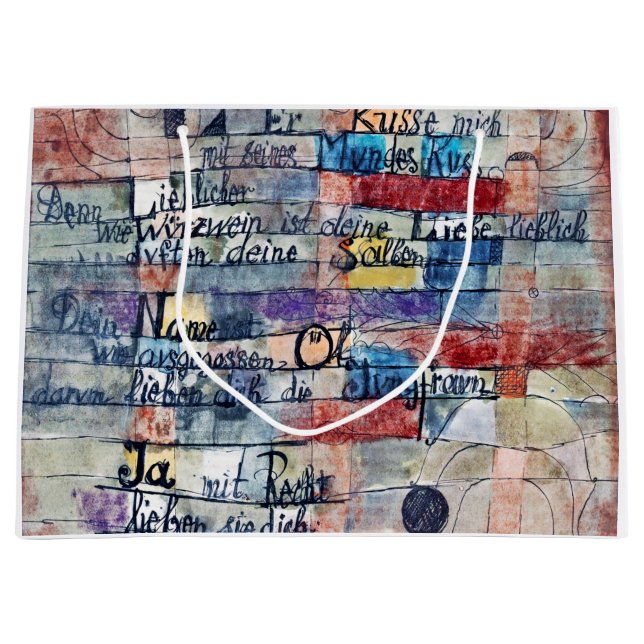 Er Küsse mich
mit seines Mundes Kuss
Denn Lieblicher
wie Würzwein ist deine Liebe lieblich
duften deine Salben
Dein Name ist
wie ausgegossen Öl,
darum lieben dich die Jungfrauen
Ja mit Recht
lieben sie dich.